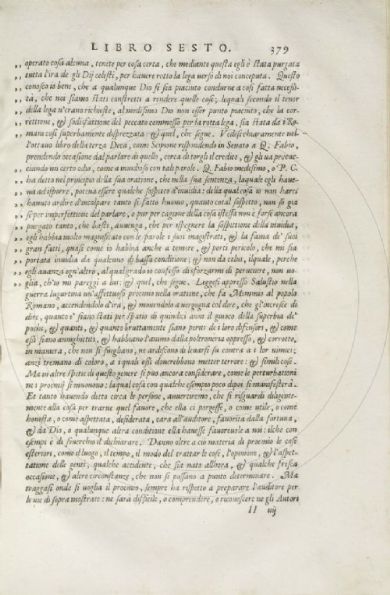 LIBRO SESTO. 379
,, operato cosa alcuna, tenete per cosa certa, che mediante questa egli è stata purgata
,, tutta l'ira de gli Dij celesti, per hauere rotto la lega verso di noi conceputa. Questo
,, conosco io bene, che a qualunque Dio si sia piaciuto condurne a così fatta necessi-
,, tà, che noi siamo stati constretti a rendere quelle cose; lequali secondo il tenor
,, della lega n'erano richieste, al medesimo Dio non punto piaciuto, che la cor-
,, rettione, & sodisfattione del peccato commesso per ha rotta lega, sia stata da i Ro-
,, mani così superbamente disprezzata: & quel, che segue. Vedesi chiaramente nel-
l'ottauo libro della terza Deca, come Scipione rispondendo in Senato a Q. Fabio,
prendendo occasione dal parlare di quello, cerca di torgli il credito, & gli va prouo-
cando un certo odio, come a inuidioso con tali parole. Q. Fabio medesimo, o' P. C.
,, ha detto nel principio della sua oratione, che nella sua sentenza, laquale egli haue-
,, ua ad isporre, poteua essere qualche sospetto d'inuidia: della qual cosa io non harei
,, hauuto ardire d'incolpare tanto si fatto huomo, quanto cotal sospetto, non si già
,, se per imperfettione del parlare, o pur per cagione della cosa istessa non è forse ancora
,, purgato tanto, che baste, auuenga, che per ispegnere la sospettione della inuidia,
,, egli habbia molto magnificato con le parole i suoi magistrati, & la fama de' suoi
,, gran fatti, quasi come io habbia anche a temere, & porti pericolo, che mi sia
,, portata inuidia da qualcuno di bassa conditione; & non da colui, ilquale, perche
,, egli auanza ogn'altro, al qual grado io confesso di sforzarmi di peruenire, non uo-
,, glia, ch'io mi pareggi a lui: & quel, che segue. Leggesi appresso Salustio nella
guerra Iugurtina un'affettuoso proemio nella oratione, che fa Mimmio al popolo
Romano, accendendolo d'ira, & mouendolo a uergogna col dire, che gl'incresce di
,, dire, quanto e' siano stati per spatio di quindici anni il giuoco della superbia de'
,, pochi, & quanto, & quanto bruttamente siano periti de i loro difensori, & come
,, essi siano annighititi, & habbiano l'animo dalla poltroneria oppresso, & corrotto,
,, in maniera, che non si suegliano, ne ardiscono di leuarsi su contra a i lor nimici;
,, anzi tremano di coloro, a i quali essi douerebbono metter terrore: & simili cose.
Ma ui altre spetie di questo genere si può ancora considerare, come le perturbationi
ne i proemij si muouono: laqual cosa con qualche esempio poco dipoi si manifesterà.
Et tanto hauendo detto circa le persone, auuertiremo, che si risguardi diligente-
mente alla cosa per trarne quel fauore, che ella ci porgesse, o come utile, o come
honesta, o come aspettata, desiderata, cara all'auditore, fauorita dalla fortuna,
& da Dio, o a qualunque altra conditione ella hauesse fauoreuole a noi: ilche con
esempi è di souerchio il dichiarare. Danno oltre a ciò materia di proemio le cose
esteriori, come il luogo, il tempo, il modo del trattar le cose, l'opinioni, & l'aspet-
tatione delle genti; qualche accidente, che sia nato all'hora, & qualche fresca
occasione, & altre circonstanze, che non si possano a punto determinare. Ma
traggasi onde si uoglia il proemio, sempre ha rispetto a preparare l'auditore per
le vie di sopra mostrate: ne sarà difficile, o comprendere, o riconoscere ne gli Autori
II iiij